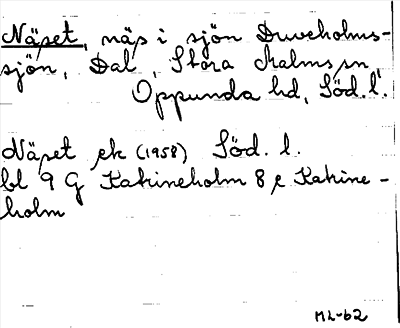 Näset, näs i sjön Duveholms-
sjön, Dal, Stora Malms sn,
Oppunda hd, Söd. l.
Näset ek (1958) Söd. l.
bl 9 G Katrineholm 8 e Katrine-
holm
ML-62